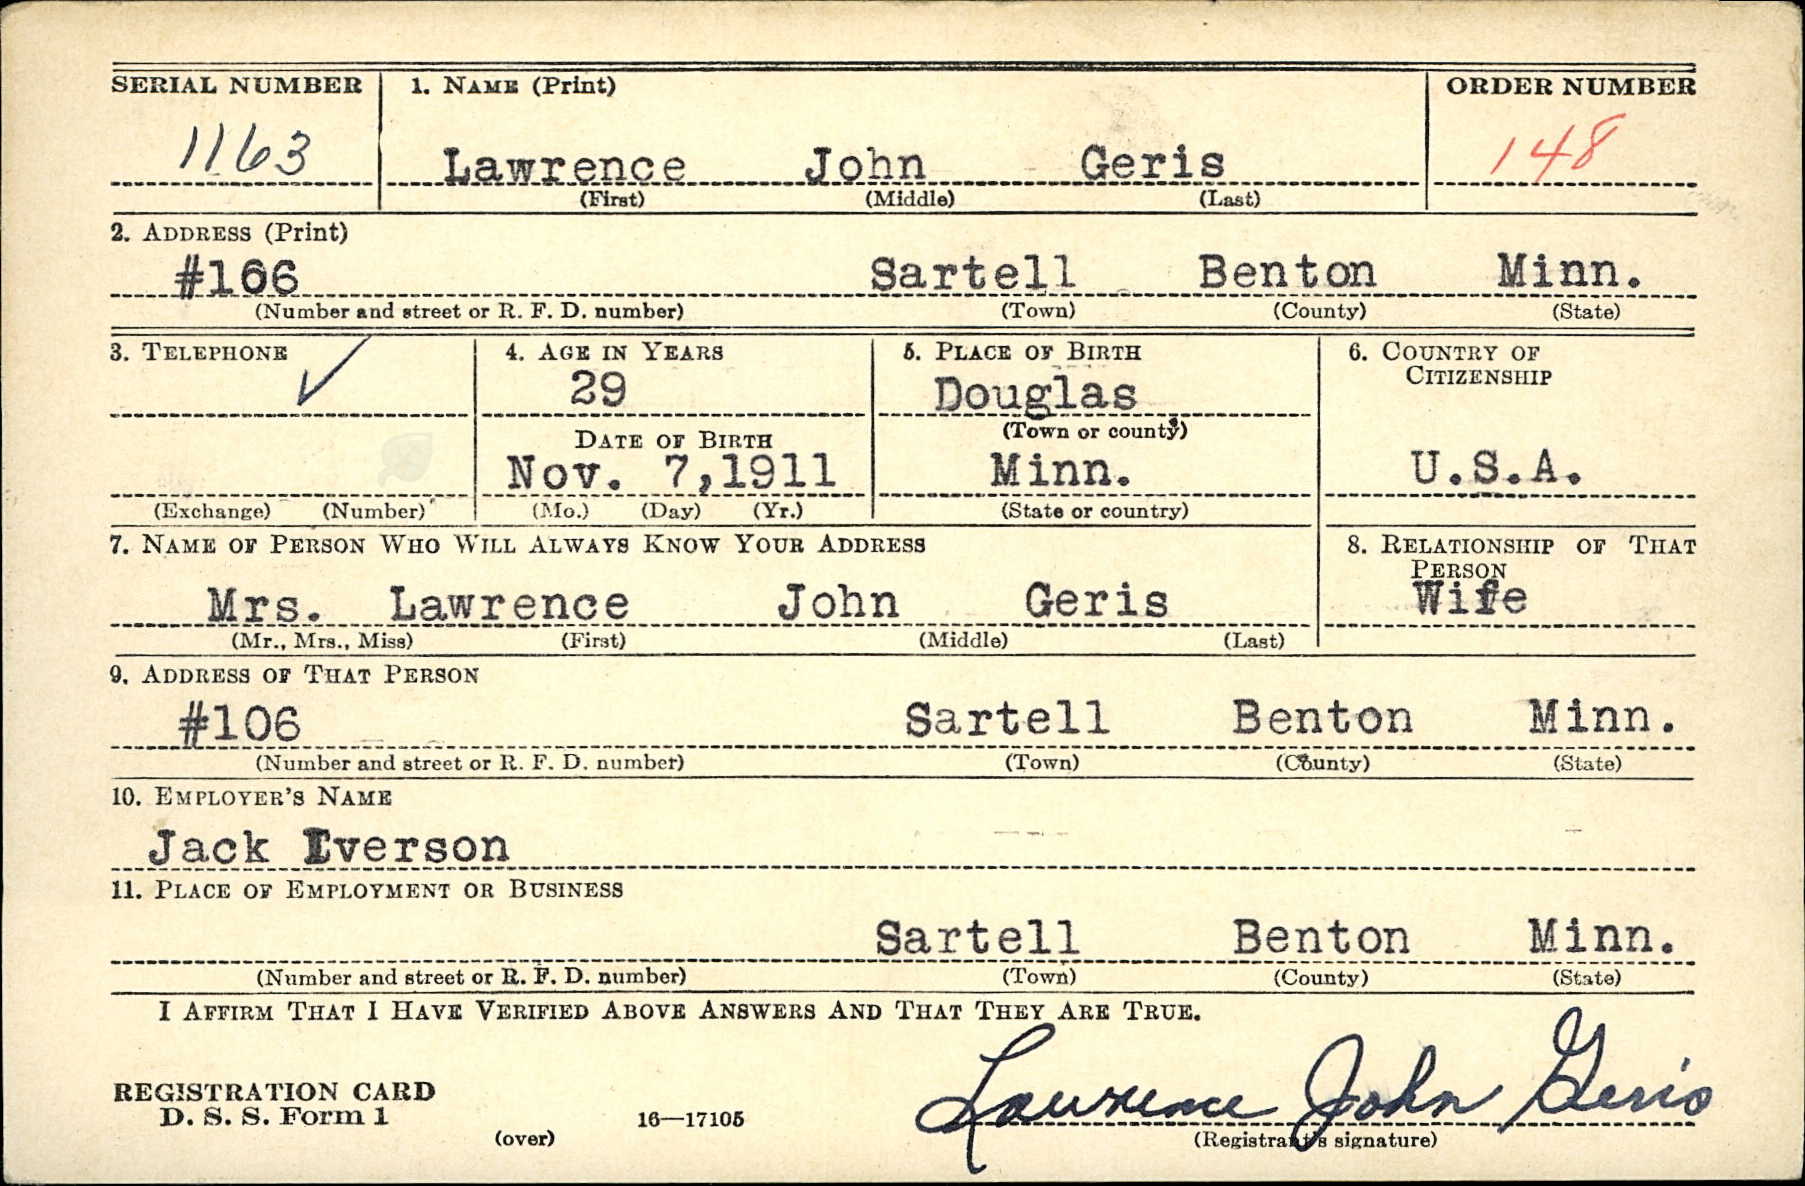 SERIAL NUMBER 1. NAME (Print) ORDER NUMBER
1163 Lawrence John Geris 148
(First) (Middle) (Last)
2. ADDRESS (Print)
#106 Sartell Benton Minn.
(Number and street or R. F. D. number) (Town) (County) (State)
3. TELEPHONE 4. AGE IN YEARS 5. PLACE OF BIRTH 6. COUNTRY OF CITIZENSHIP
29 Douglas
DATE OF BIRTH (Town or county)
Nov. 7,1911 Minn. U.S.A.
(Exchange) (Number) (Mo.) (Day) (Yr.) (State or country)
7. NAME OF PERSON WHO WILL ALWAYS KNOW YOUR ADDRESS 8. RELATIONSHIP OF THAT PERSON
Mrs. Lawrence John Geris Wife
(Mr., Mrs., Miss) (First) (Middle) (Last)
9. ADDRESS OF THAT PERSON
#106 Sartell Benton Minn.
(Number and street or R. F. D. number) (Town) (County) (State)
10. EMPLOYER'S NAME
Jack Iverson
11. PLACE OF EMPLOYMENT OR BUSINESS
Sartell Benton Minn.
(Number and street or R. F. D. number) (Town) (County) (State)
I AFFIRM THAT I HAVE VERIFIED ABOVE ANSWERS AND THAT THEY ARE TRUE.
REGISTRATION CARD Lawrence John Geris
D. S. S. Form 1 16—17105
(over) (Registrant's signature)